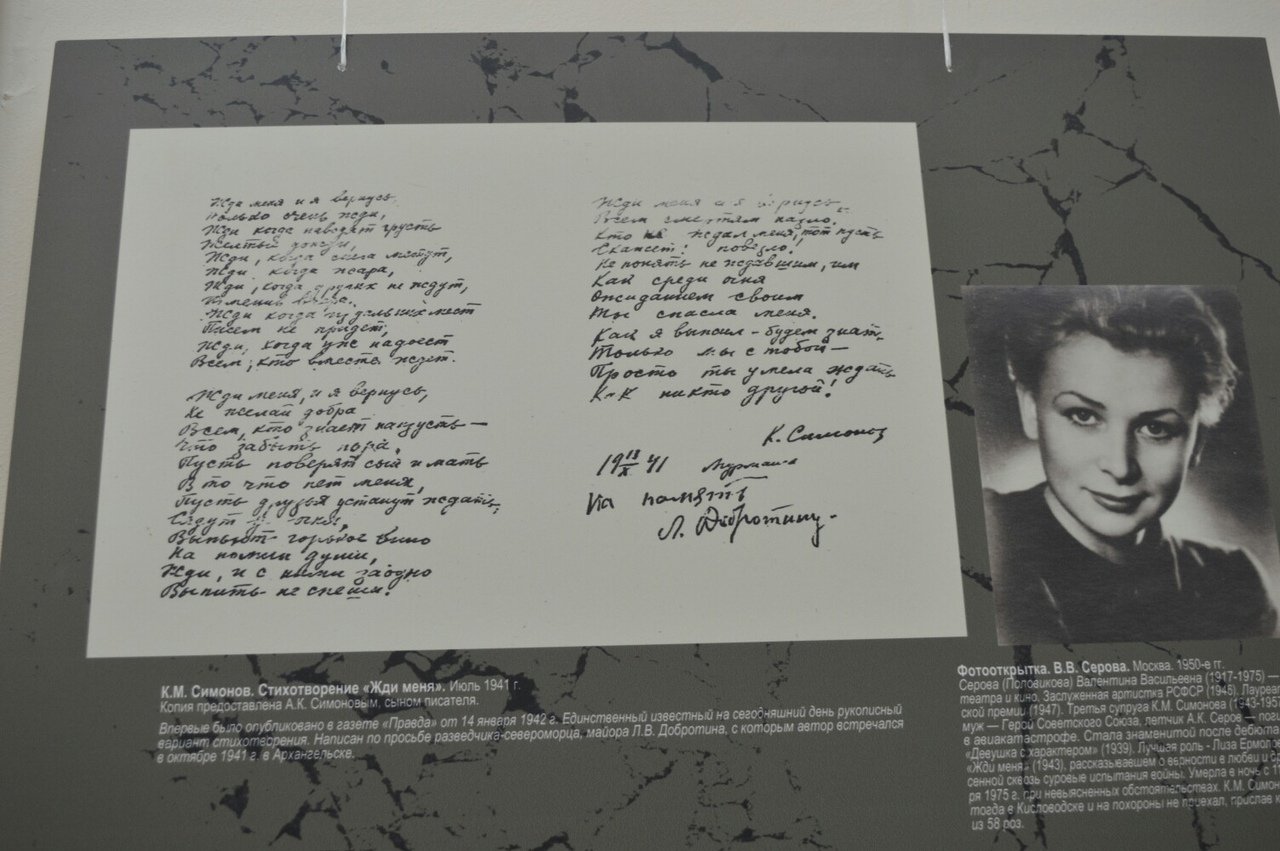 Жди меня и я вернусь,
Только очень жди,
Жди когда наводят грусть
Желтые дожди,
Жди, когда снега метут,
Жди когда жара,
Жди, когда других не ждут,
Изменив вчера.
Жди когда из дальних мест
Писем не придет,
Жди, когда уж надоест
Всем, кто вместе ждет.
Жди меня, и я вернусь,
Не желай добра
Всем, кто знает наизусть—
Что забыть пора.
Пусть поверят сын и мать
В то что нет меня,
Пусть друзья устанут ждать,
Сядут у огня,
Выпьют горькое вино
На помин души,
Жди, и с ними заодно
Выпить не спеши.
Жди меня и я вернусь
Всем смертям назло.
Кто не ждал меня, тот пусть
Скажет: повезло!
Не понять не ждавшим, им
Как среди огня
Ожиданием своим
Ты спасла меня.
Как я выжил - будем знать
Только мы с тобой—
Просто ты умела ждать
Как никто другой!
К. Симонов
19 41
На память
Л. Добротину.
К.М. Симонов. Стихотворение «Жди меня». Июль 1941 г.
Копия предоставлена А.К. Симоновым, сыном писателя.
Впервые было опубликовано в газете «Правда» от 14 января 1942 г. Единственный известный на сегодняшний день рукописный
вариант стихотворения. Написан по просьбе разведчика-североморца, майора Л.В. Добротина, с которым автор встречался
в октябре 1941 г. в Архангельске.
Фотооткрытка. В.В. Серова. Москва. 1950-е гг.
Серова (Половикова) Валентина Васильевна (1917-1975) —
театра и кино. Заслуженная артистка РСФСР (1946). Лауреат
ской премии (1947). Третья супруга К.М. Симонова (1943-1957
муж — Герой Советского Союза, летчик А.К. Серов -
в авиакатастрофе. Стала знаменитой после дебюта
«Девушка с характером» (1939). Лучшая роль - Лиза Ермоло
«Жди меня» (1943), рассказывавшем о верности в любви и
сенной сквозь суровые испытания войны. Умерла в ночь с
ря 1975 г. при невыясненных обстоятельствах. К.М. Симон
тогда в Кисловодске и на похороны не приехал, прислав
из 58 роз.